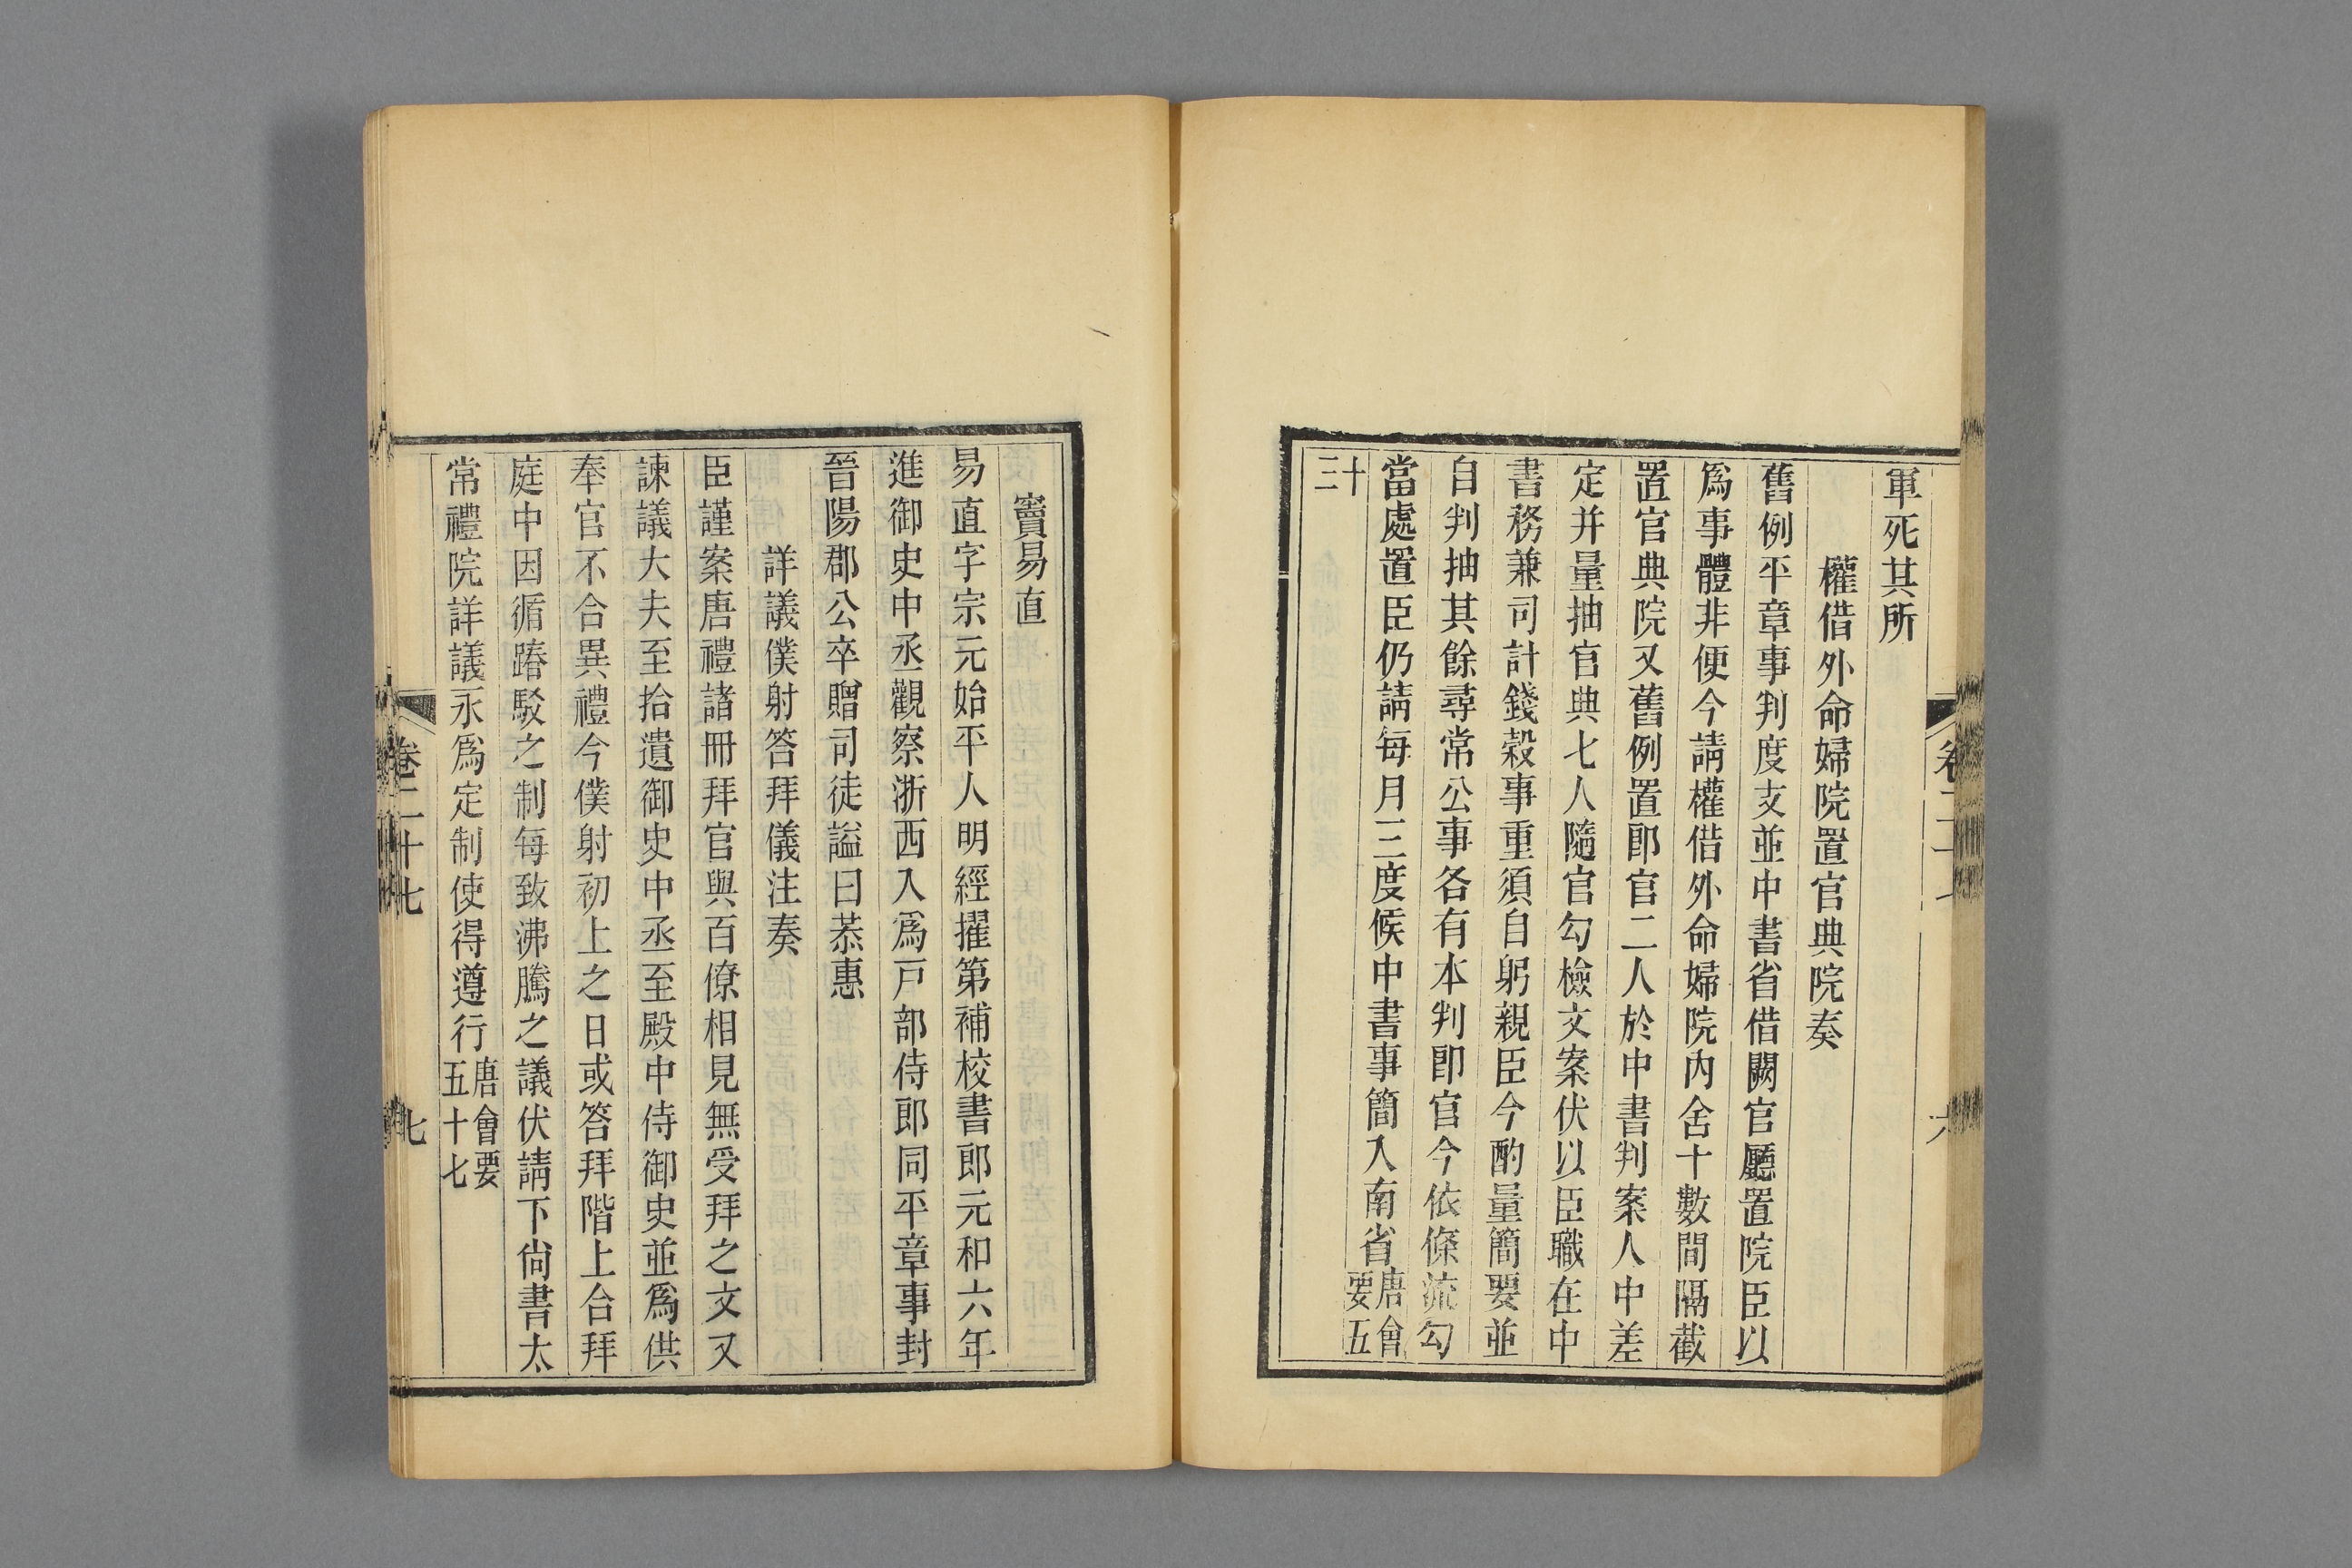 軍死其所
權借外命婦院置官典院奏
舊例平章事判度支並中書省借闕官廳置院臣以
爲事體非便今請權借外命婦院內舍十數間隔截
置官典院又舊例置郎官二人於中書判案人中差
定并量抽官典七人隨官勾檢文案伏以臣職在中
書務兼司計錢穀事重須自躬親臣今酌量簡要並
自判抽其餘尋常公事各有本判郎官今依條流勾
當處置臣仍請每月三度候中書事簡入南省唐會
要五
十
三
竇易直
易直字宗元始平人明經擢第補校書郎元和六年
進御史中丞觀察浙西入爲戸部侍郎同平章事封
晉陽郡公卒贈司徒謚曰恭惠
詳議僕射答拜儀注奏
臣謹案唐禮諸冊拜官與百僚相見無受拜之文又
諫議大夫至拾遺御史中丞至殿中侍御史並爲供
奉官不合異禮今僕射初上之日或答拜階上合拜
庭中因循踳駁之制每致沸騰之議伏請下尙書太
常禮院詳議永爲定制使得遵行唐會要
五十七
卷二十七
七